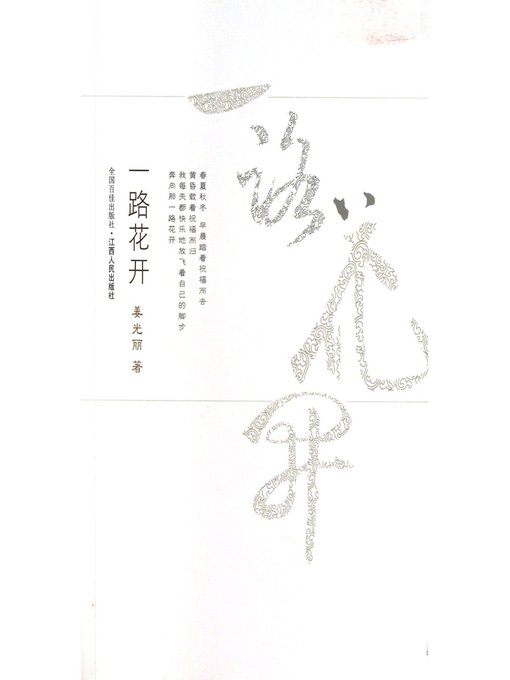 一路花开
春夏秋冬 早晨踏着祝福而去
黄昏载着祝福而归
我每天都快乐地放飞着自己的脚步
奔向那一路花开
一路花开
姜光丽 著
全国百佳出版社·江西人民出版社